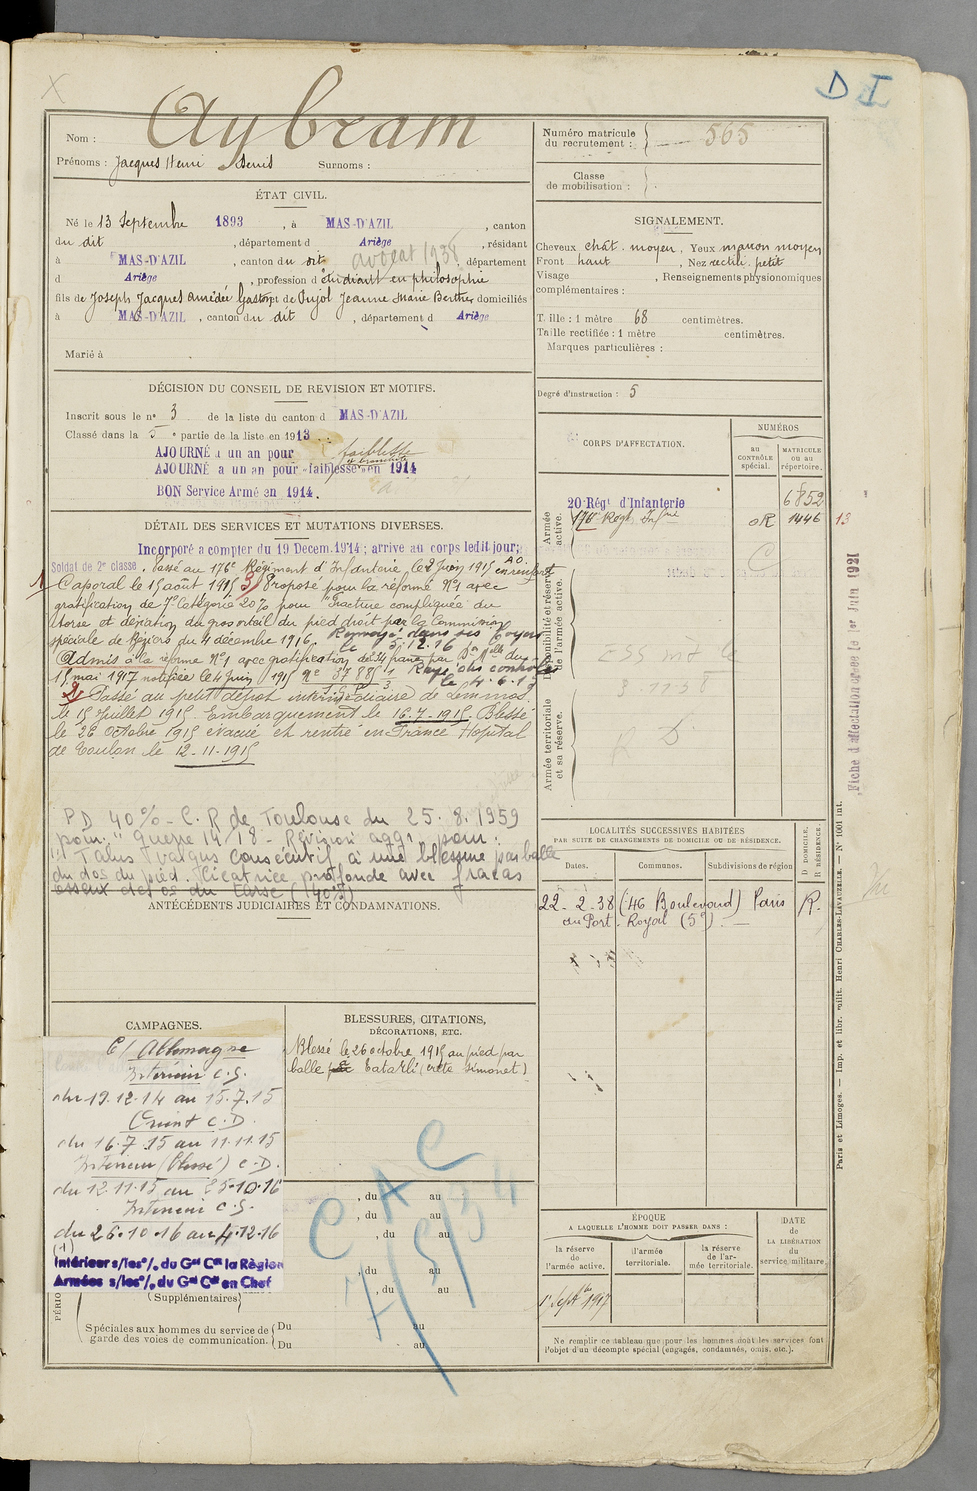 D I
Aybram
Nom :
Prénoms : Jacques Henri Denis Surnoms :
Numéro matricule du recrutement : 565
Classe de mobilisation :
ÉTAT CIVIL.
Né le 13 Septembre 1893, à MAS-D'AZIL, canton
du dit, département d Ariège, résidant
à MAS-D'AZIL, canton du dit avocat 1938, département
d Ariège, profession d'étudiant en philosophie
fils de Joseph Jacques Amédée Gaston et de Pujol Jeanne Marie Berthe, domiciliés
à MAS-D'AZIL, canton du dit, département d Ariège
Marié à
SIGNALEMENT.
Cheveux chât. moyen, Yeux marron moyen
Front haut, Nez rectil. petit
Visage , Renseignements physionomiques
complémentaires :
Taille : 1 mètre 68 centimètres.
Taille rectifiée : 1 mètre centimètres.
Marques particulières :
Degré d'instruction : 5
DÉCISION DU CONSEIL DE REVISION ET MOTIFS.
Inscrit sous le n° 3 de la liste du canton d MAS-D'AZIL
Classé dans la 5e partie de la liste en 1913
AJOURNÉ à un an pour faiblesse
AJOURNÉ à un an pour faiblesse en 1914
BON Service Armé en 1914.
DÉTAIL DES SERVICES ET MUTATIONS DIVERSES.
Incorporé à compter du 19 Decem. 1914; arrivé au corps ledit jour;
Soldat de 2e classe. Passé au 176e Régiment d'Infanterie, le 2 Juin 1915 en renfort AO.
1) Caporal le 15 août 1915 3) Proposé pour la réforme N°1 avec
gratification de 7e Catégorie 20% pour "Fracture compliquée du
tarse et déviation du gros orteil du pied droit par la Commission
spéciale de Béziers du 4 décembre 1916. Renvoyé dans ses foyers
le 5.12.16
Admis à la réforme N°1 avec gratification de par Don Mlle du
15 mai 1917 notifiée le 4 juin Rayé des contrôles
le 4.6.17
2) Passé au petit dépôt intermédiaire de Lemnos
le 15 Juillet 1915. Embarquement le 16-7-1915. Blessé
le 26 Octobre 1915 évacué et rentré en France Hôpital
de Toulon le 12-11-1915
PD 40% - C.R de Toulouse du 25.8.1959
pour : "guerre 14/18 - Révision agg. pour :
1) Talus valgus consécutif à une blessure par balle
du dos du pied. Cicatrice profonde avec fracas
osseux des os du tarse (40%)
ANTÉCÉDENTS JUDICIAIRES ET CONDAMNATIONS.
CORPS D'AFFECTATION.
NUMÉROS
au CONTRÔLE spécial.
MATRICULE ou au répertoire.
Armée active.
20 Régt d'Infanterie 6852
176e Régt Infrie OR 1446 13
Disponibilité et réserve de l'armée active.
3.11.38
R D.
Armée territoriale et sa réserve.
Fiche d'affectation créée le 1er Juin 1921
LOCALITÉS SUCCESSIVES HABITÉES
PAR SUITE DE CHANGEMENTS DE DOMICILE OU DE RÉSIDENCE.
Dates. Communes. Subdivisions de région
D DOMICILE.
R RÉSIDENCE.
22-2-38 (46 Boulevard) Paris R.
du Port Royal (5e). —
CAMPAGNES.
C/ Allemagne
Intérieur C.S.
du 19.12.14 au 15.7.15
Orient C.D.
du 16.7.15 au 11.11.15
Intérieur (blessé) C.D.
du 12.11.15 au 25.10.16
Intérieur C.S.
du 26.10.16 au 4.12.16
(1)
Intérieur s/les o/. du Gal Ct la Région
Armées s/les o/. du Gal Ct en Chef
BLESSURES, CITATIONS,
DÉCORATIONS, ETC.
Blessé le 26 octobre 1915 au pied par
balle à Tatarli (crête Simonet)
C A C
, du au
, du au
, du au
, du au
, du au
(Supplémentaires)
Spéciales aux hommes du service de garde des voies de communication.
Du au
Du au
ÉPOQUE
A LAQUELLE L'HOMME DOIT PASSER DANS :
la réserve de l'armée active.
l'armée territoriale.
la réserve de l'armée territoriale.
DATE DE LA LIBÉRATION du service militaire.
1er Septbre 1917
Ne remplir ce tableau que pour les hommes dont les services font
l'objet d'un décompte spécial (engagés, condamnés, omis, etc.).
Paris et Limoges. — Imp. et libr. milit. Henri CHARLES-LAVAUZELLE. — N° 1001 int.
Vu